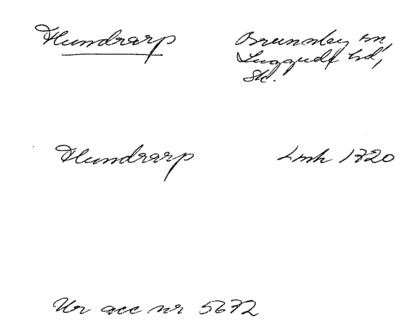 Flundrarp Brunnby sn,
Luggude hd,
Sk.
Flundrarp Lmh 1720
Ur acc nr 5672